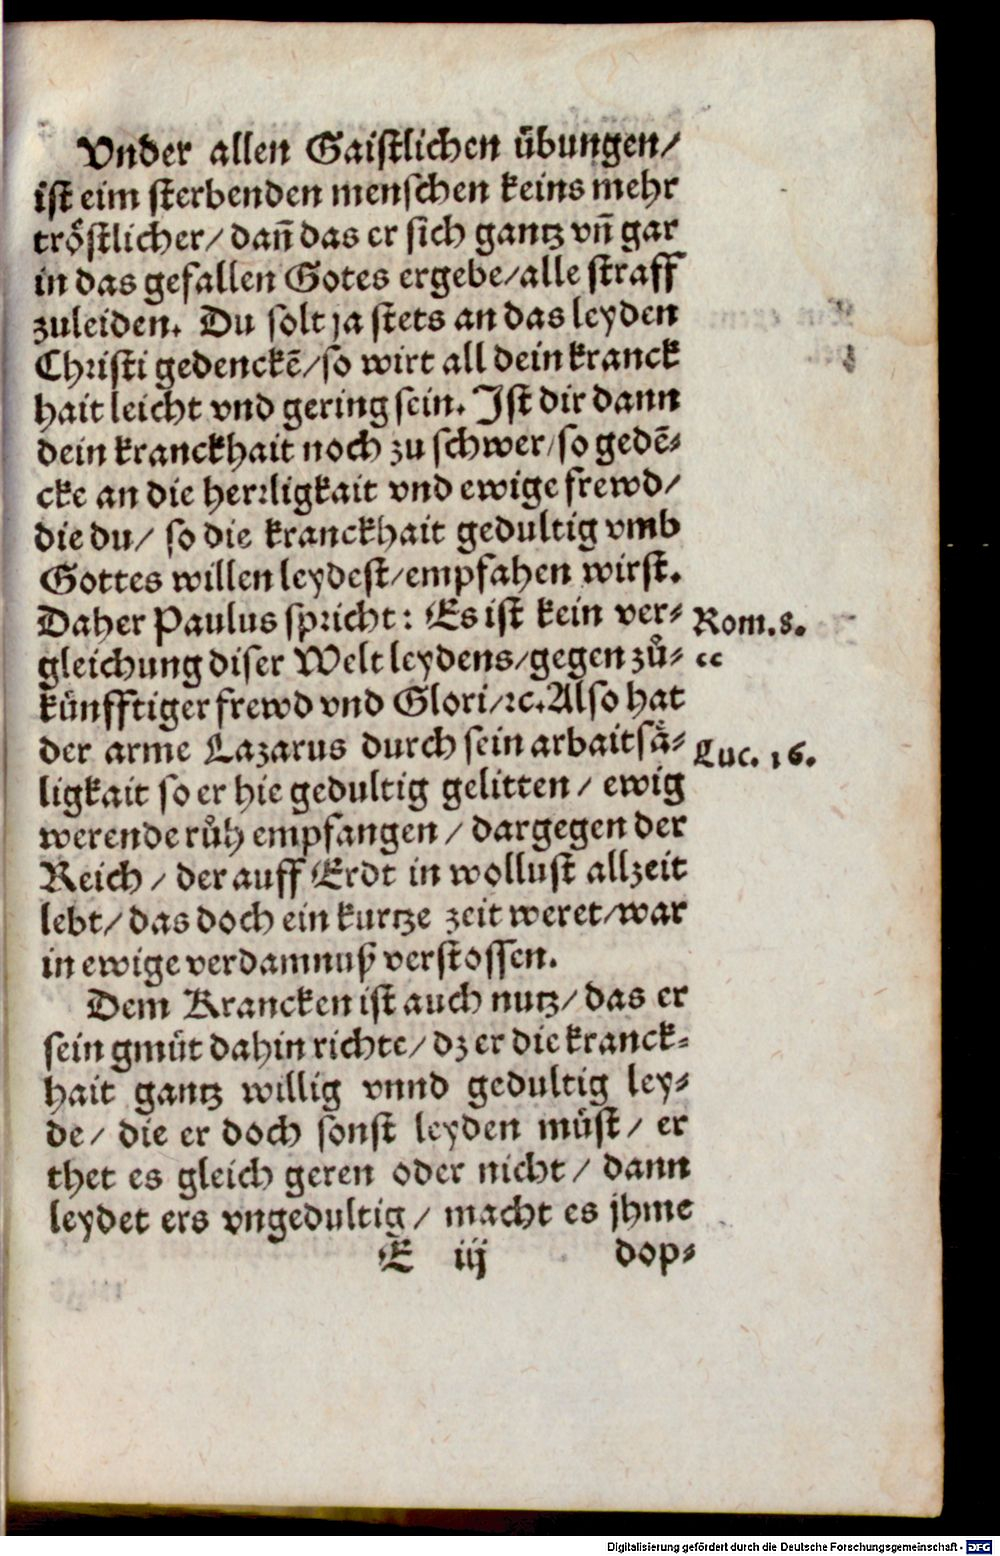 Vnder allen Gaistlichen übungen/
ist eim sterbenden menschen keins mehr
tröstlicher/ dañ das er sich gantz vñ gar
in das gefallen Gotes ergebe/alle straff
zuleiden. Du solt ja stets an das leyden
Christi gedenckẽ/so wirt all dein kranck
hait leicht vnd gering sein. Ist dir dann
dein kranckhait noch zu schwer/so gedẽ-
cke an die herrligkait vnd ewige frewd/
die du/ so die kranckhait gedultig vmb
Gottes willen leydest/empfahen wirst.
Daher Paulus spricht: Es ist kein ver- Rom.8.
gleichung diser Welt leydens/gegen zů- cc
künfftiger frewd vnd Glori/ꝛc.Also hat
der arme Lazarus durch sein arbaitsä- Luc. 16.
ligkait so er hie gedultig gelitten/ ewig
werende růh empfangen/ dargegen der
Reich/ der auff Erdt in wollust allzeit
lebt/ das doch ein kurtze zeit weret/war
in ewige verdamnuß verstossen.
Dem Krancken ist auch nutz/ das er
sein gmüt dahin richte/ dz er die kranck-
hait gantz willig vnnd gedultig ley-
de/ die er doch sonst leyden müst/ er
thet es gleich geren oder nicht/ dann
leydet ers vngedultig/ macht es jhme
E iij dop-
Digitalisierung gefördert durch die Deutsche Forschungsgemeinschaft - DFG